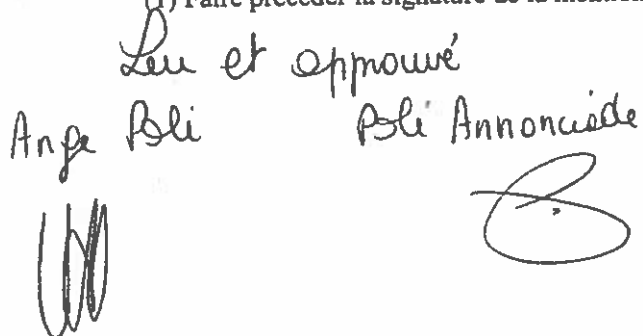 (1) Faire précéder la signature de la mention
Lu et approuvé
Ange Poli Poli Annonciade